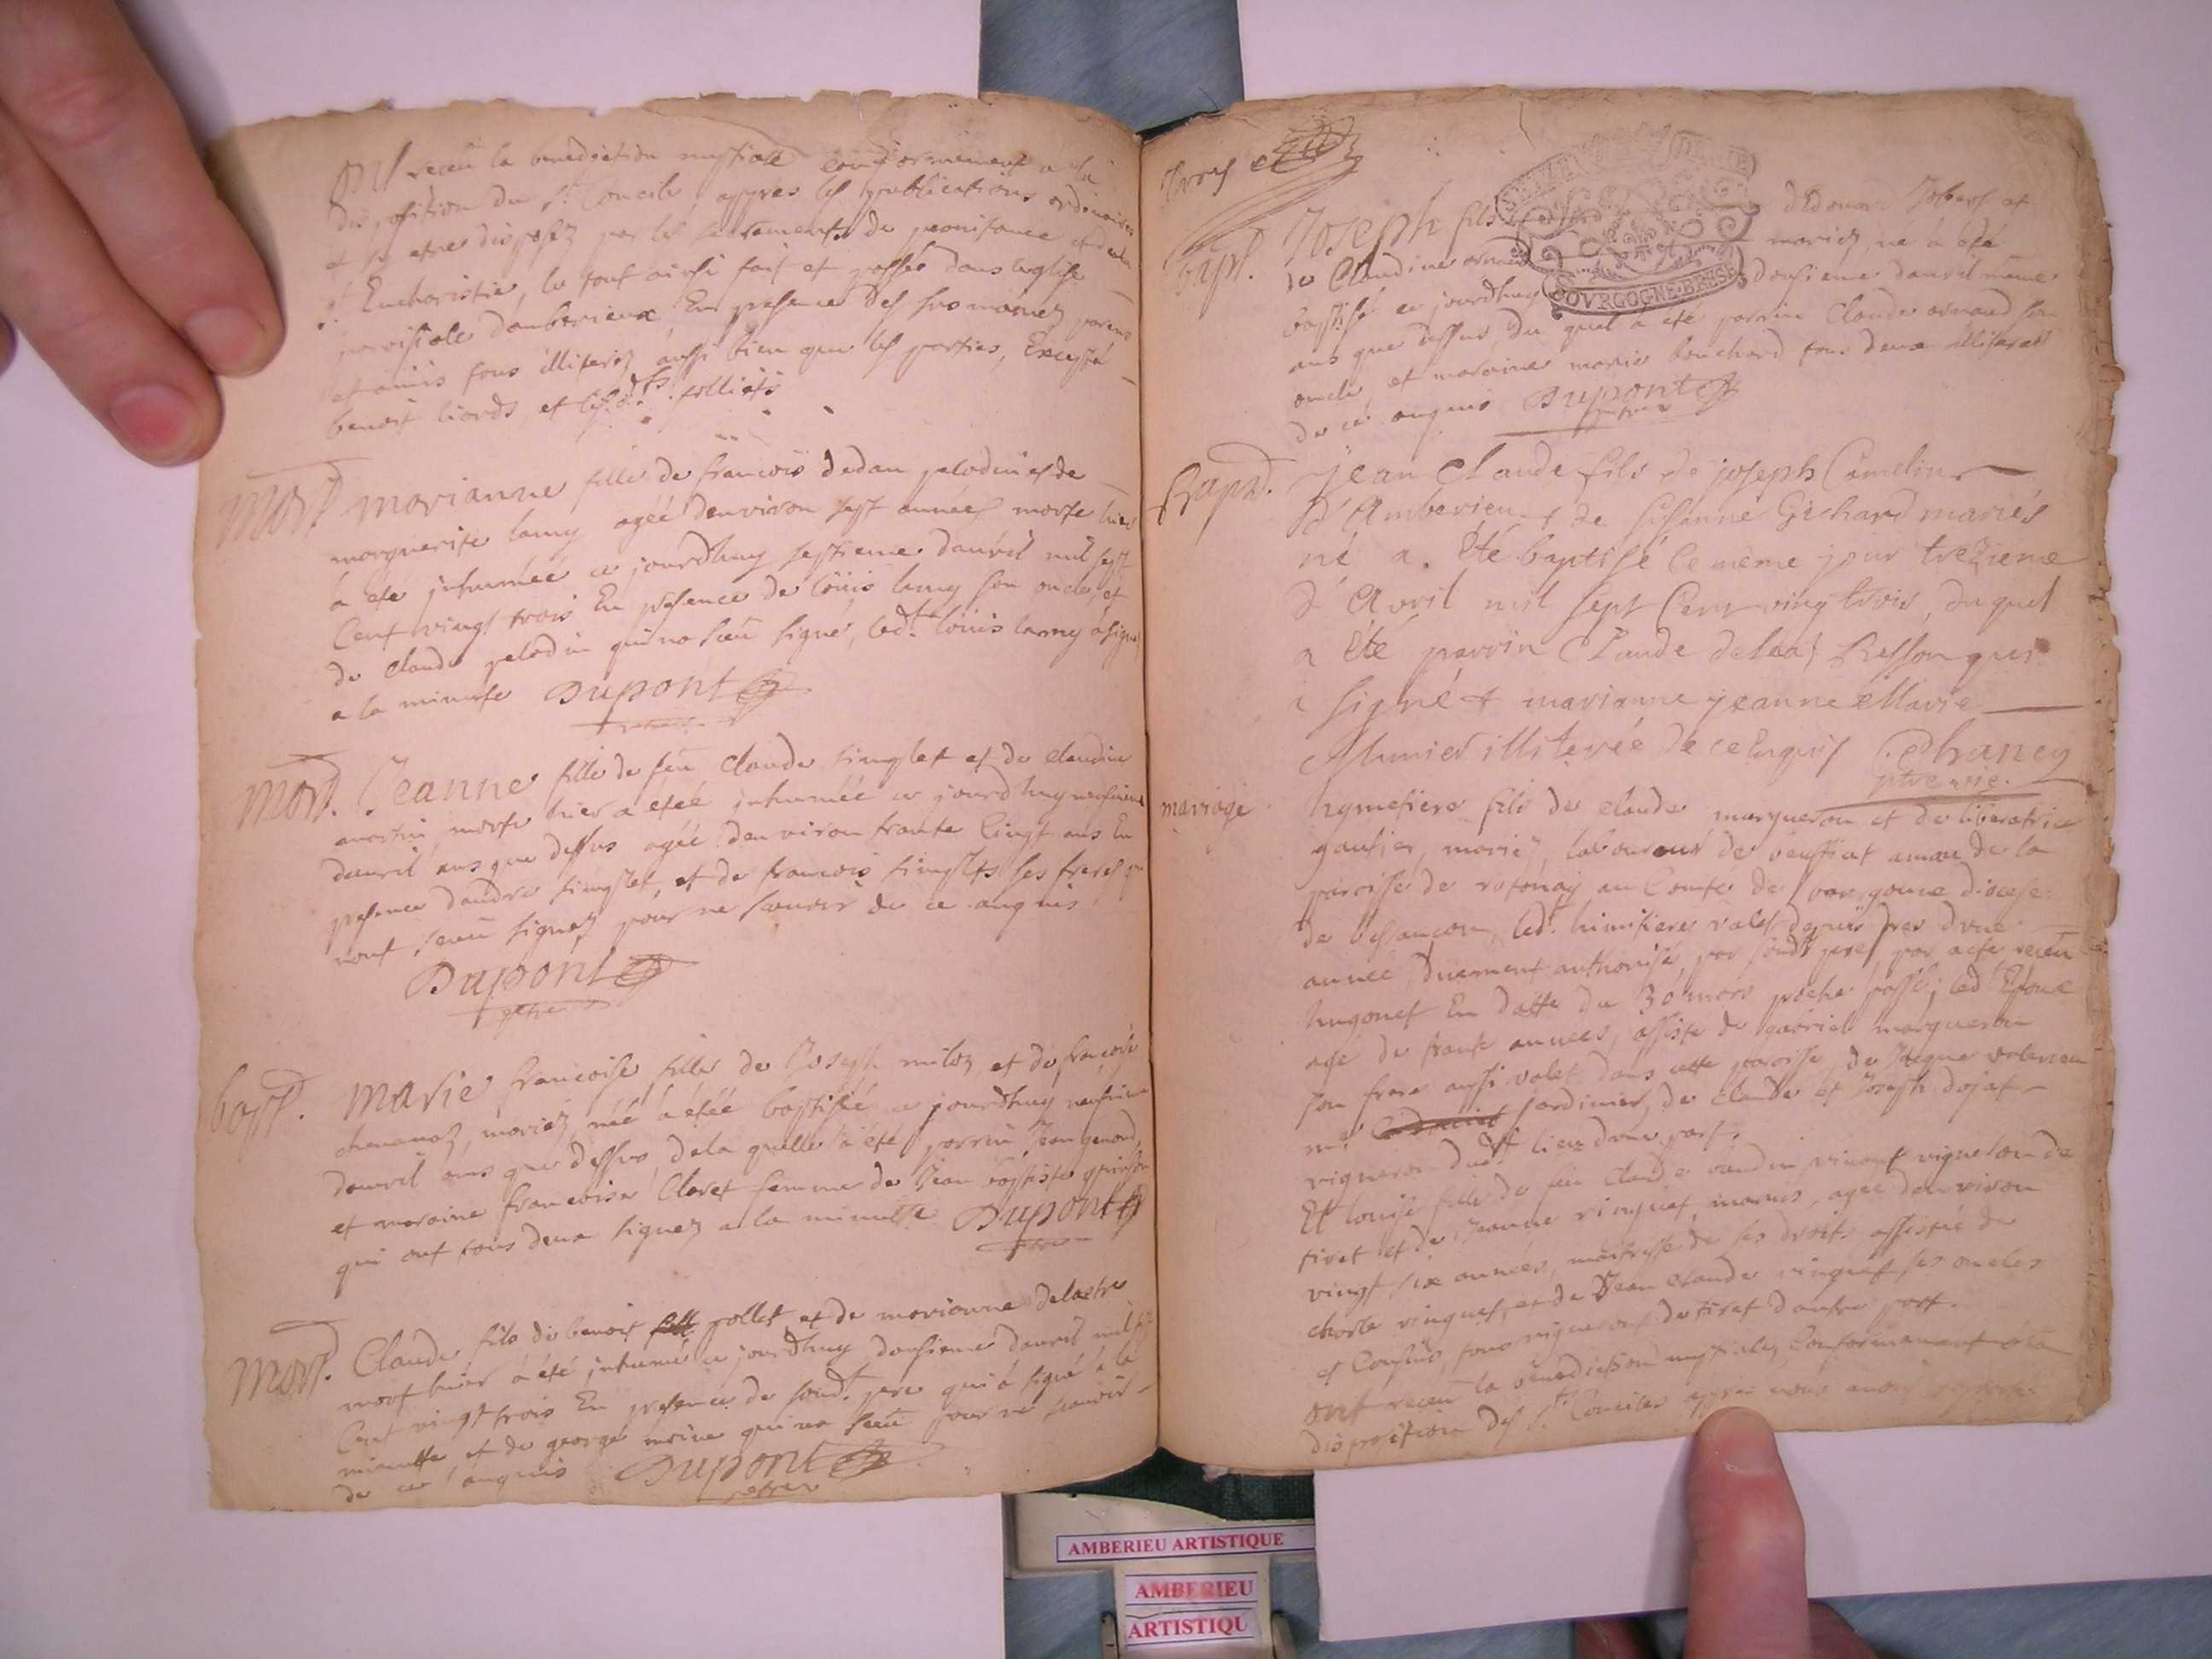 ont receu la benediction nuptiale conformement a la
disposition du st Concile, appres les publications ordinaires
et sy etre disposez par les sacrements de penitance et de la
st Eucharistie, le tout ainsi fait et passé dans leglise
parroisiale damberieux En presence des sus nomméz parens
et amis tous illiterez aussi bien que les parties, Excepté
benoit liords, et lesdts folliets
Mort. Marianne fille de francois dedan pelodin et de
marguerite lamy agéé denviron sept années morte hier
à été inhumée ce jourdhuy septieme dauril mil sept
Cent vingt trois En presence de loüis lamy son oncle, et
de claude pelodin qui na sceu signé, ledt loüis lamy a signé
a la minutte Dupont
ptre
Mort. Jeanne fille de feu claude singlet et de claudine
martin, morte hier a étéé inhuméé ce jourdhuy neufuieme
dauril ans que dessus agéé denviron trante Cinqt ans En
presence dandre singlet, et de francois singlets ses freres qui
nont sceu signez pour ne scauoir de ce anquis
Dupont
ptre
bapt. Marie francoise fille de Joseph miloz, et de francoise
chenauaz, mariéz, néé à étéé baptiséé ce jourdhuy neufuieme
dauril ans que dessus, de la quelle à été parrin Jean genand,
et maraine francoise Claret femme de Jean baptiste grinson
qui ont tous deux signez a la minutte Dupont
ptre
Mort. Claude fils de benoit pollet, et de marianne delastre
mort hier à été inhumé ce jourdhuy dousieme dauril mil sept
Cent vingt trois En presence de sondt pere qui à signé à la
minutte, et de george moine qui na sceu pour ne scauoir
de ce anquis Dupont
ptre
trois et
bapt. Joseph fils dEdouard Jobert et
de Claudine arnaud mariéz, né à été
baptisé ce jourdhuy dousieme dauril meme
ans que dessus, du quel à été parrin Claude arnaud son
oncle, et maraine marie bouchard tous deux illiteres
de ce anquis Dupont
ptre
BOVRGOGNE BRESSE
Bapt. Jean Claude fils de joseph Camelin
d'Amberieu & de Susanne Gichard mariés
né a. été baptisé le même jour trezieme
d'Avril mil sept Cent vingt trois, du quel
a été parrin Claude delaat Besson qui
a signé & marianne jeanne Marie
Munier illiterée de ce Enquis Chaney
ptre vic.
mariage hymetiere fils de claude margueron et de liberatrice
gautier, mariéz, laboureur de beffiat annex de la
paroisse de rotonay au Comté de bourgonie diocese
de besancon, ledt himitiere valet depuis pres dune
année, duement authorisé, par sondt pere, par acte receu
hugonet En datte du 30 mars proche passé; led Epoux
agé de trante années, assisté de gabriel margueron
son frere aussi valet dans cette paroisse de Jacque valerien
me jardinier, de claude et Joseph dojat
vigneron dudt lieu dune part.
Et louise fille de feu claude baudin vivant vigneron de
tiret et de Jeanne vinquet, mariés, agée denviron
vingt six années, maitresse de ses droits assistée de
charle vinquet, et de Jean claude vinquet ses oncles
et Cousins, tous vignerons de tiret dautre part.
ont receu la benediction nuptiale, Conformement a la
disposition des st Conciles appres nous auoir
AMBERIEU ARTISTIQUE
AMBERIEU
ARTISTIQU